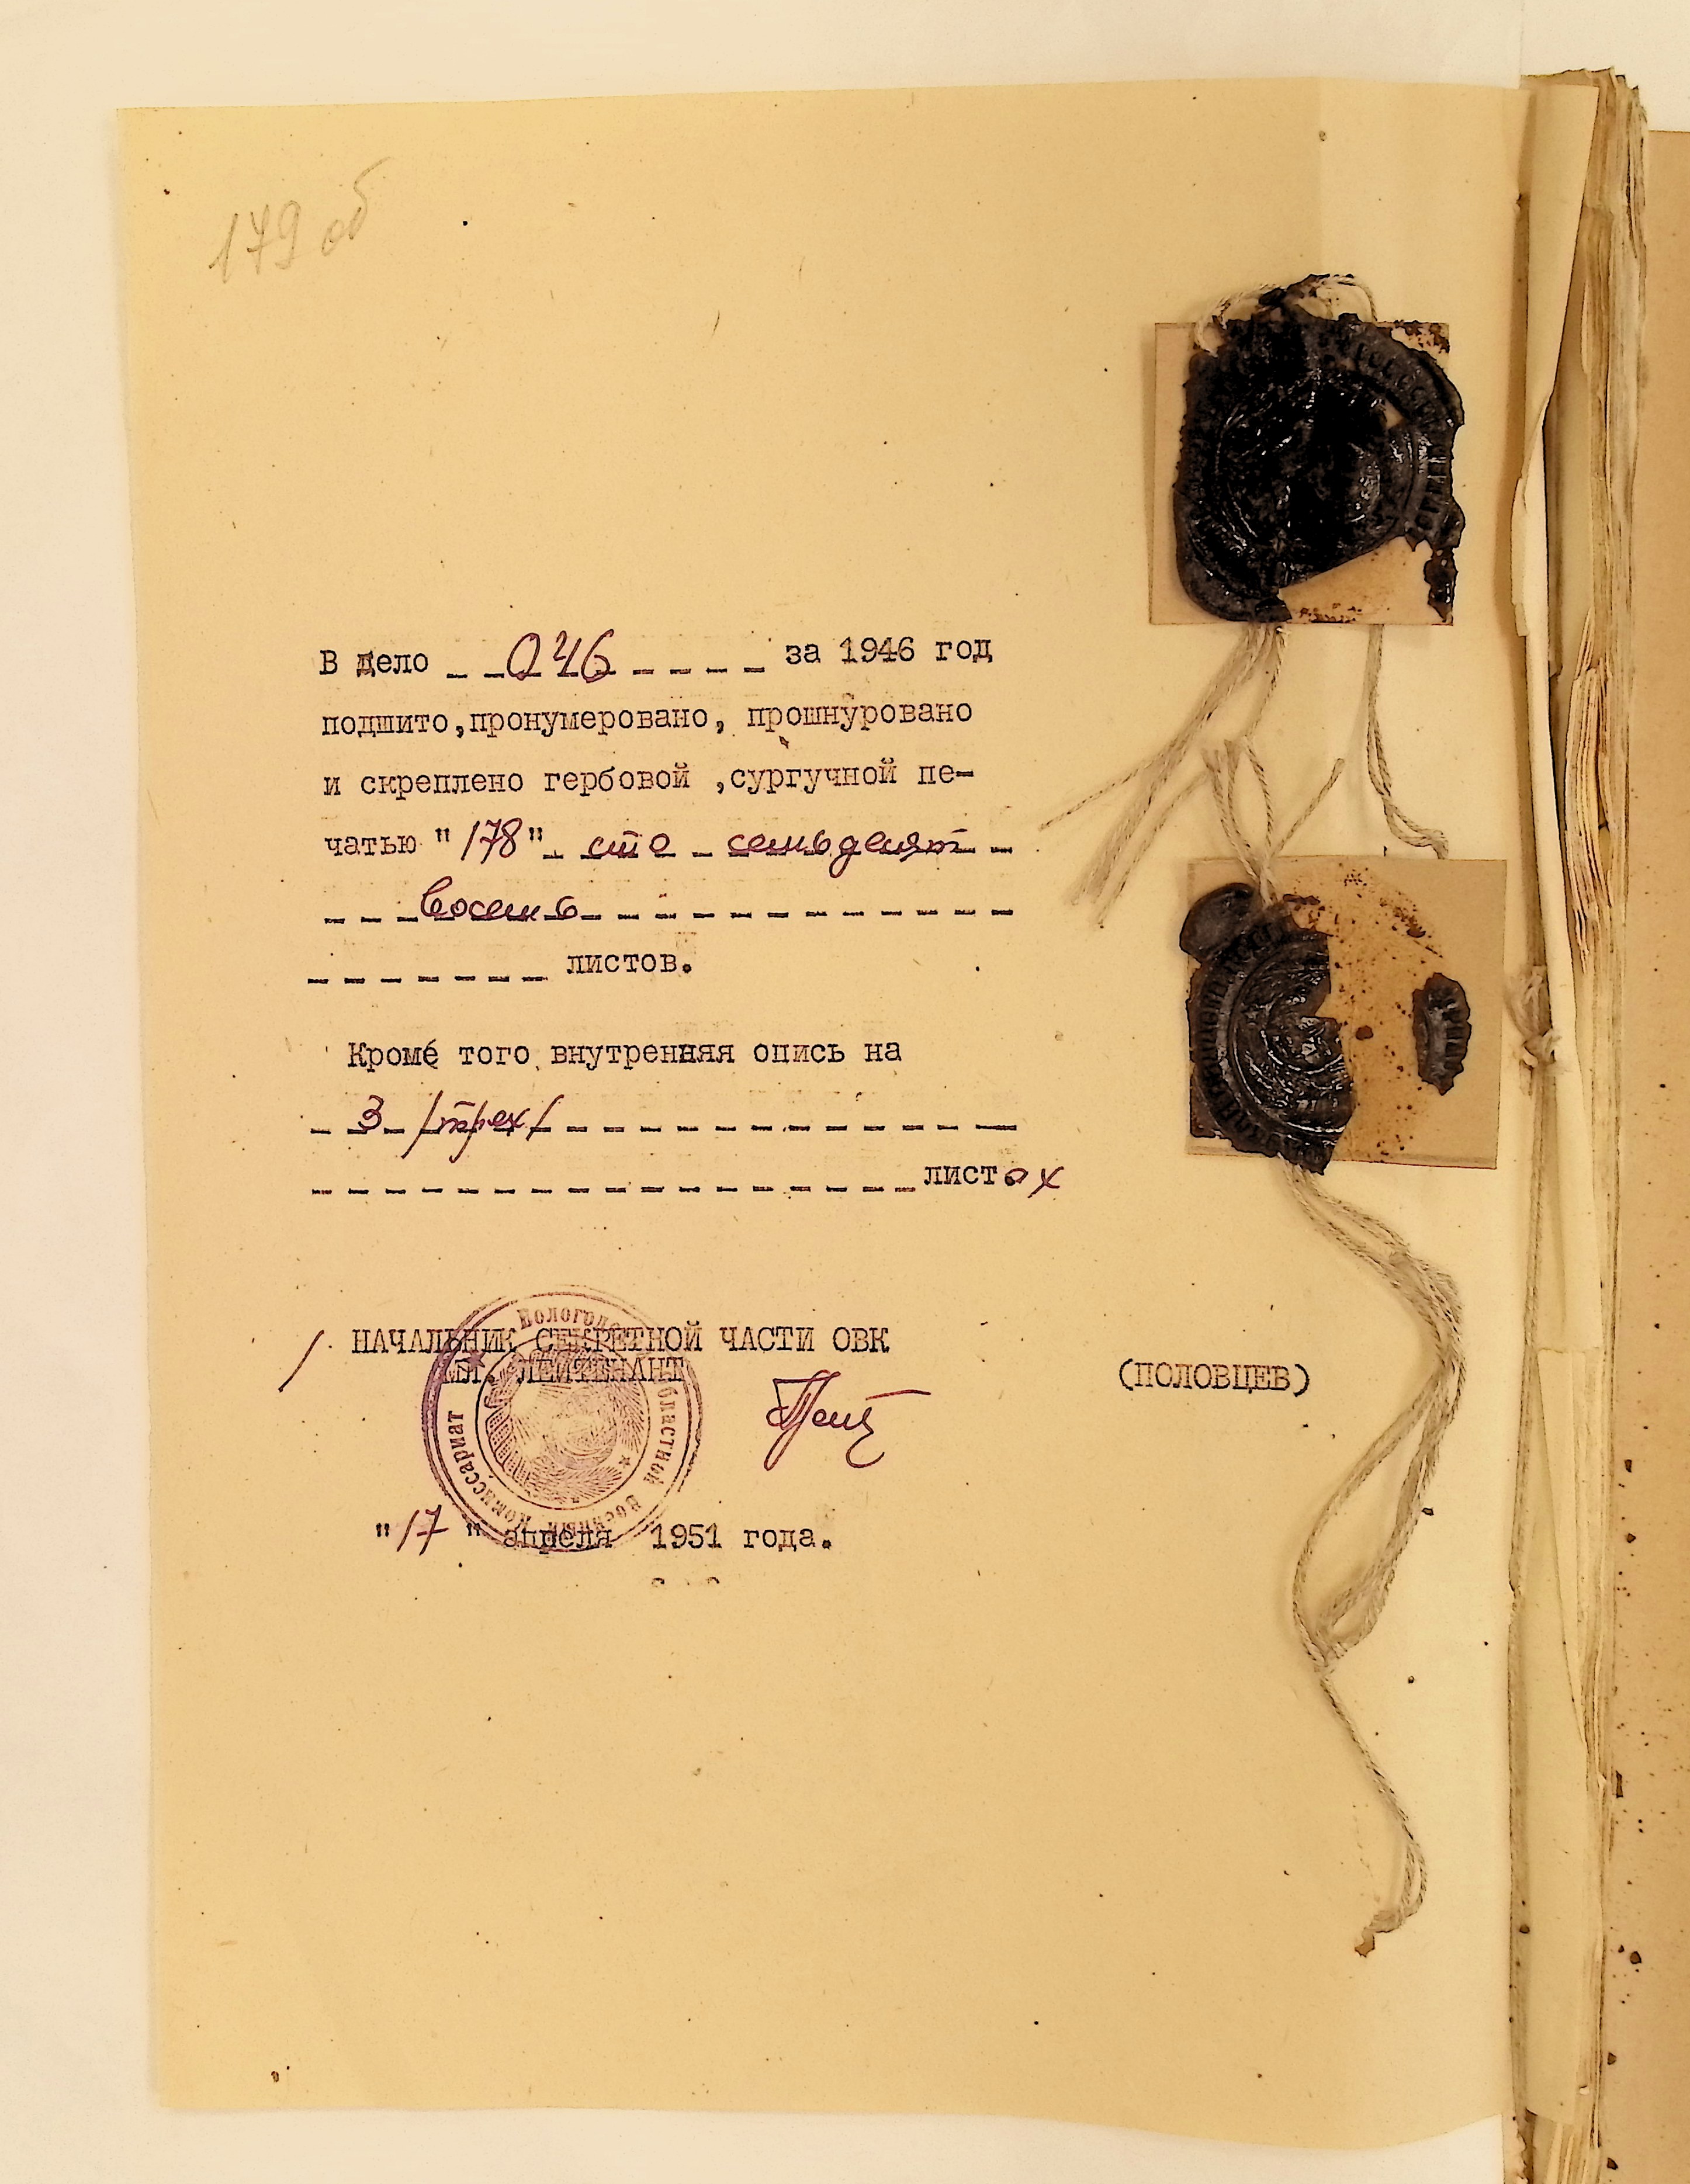 179 об
В дело 046 за 1946 год
подшито, пронумеровано, прошнуровано
и скреплено гербовой ,сургучной пе-
чатью "178" сто семьдесят
восемь
листов.
Кроме того внутренняя опись на
3 /трех/
листах
НАЧАЛЬНИК СЕКРЕТНОЙ ЧАСТИ ОВК
МЛ. ЛЕЙТЕНАНТ
(ПОЛОВЦЕВ)
Областной Военный Комиссариат
"17" апреля 1951 года.